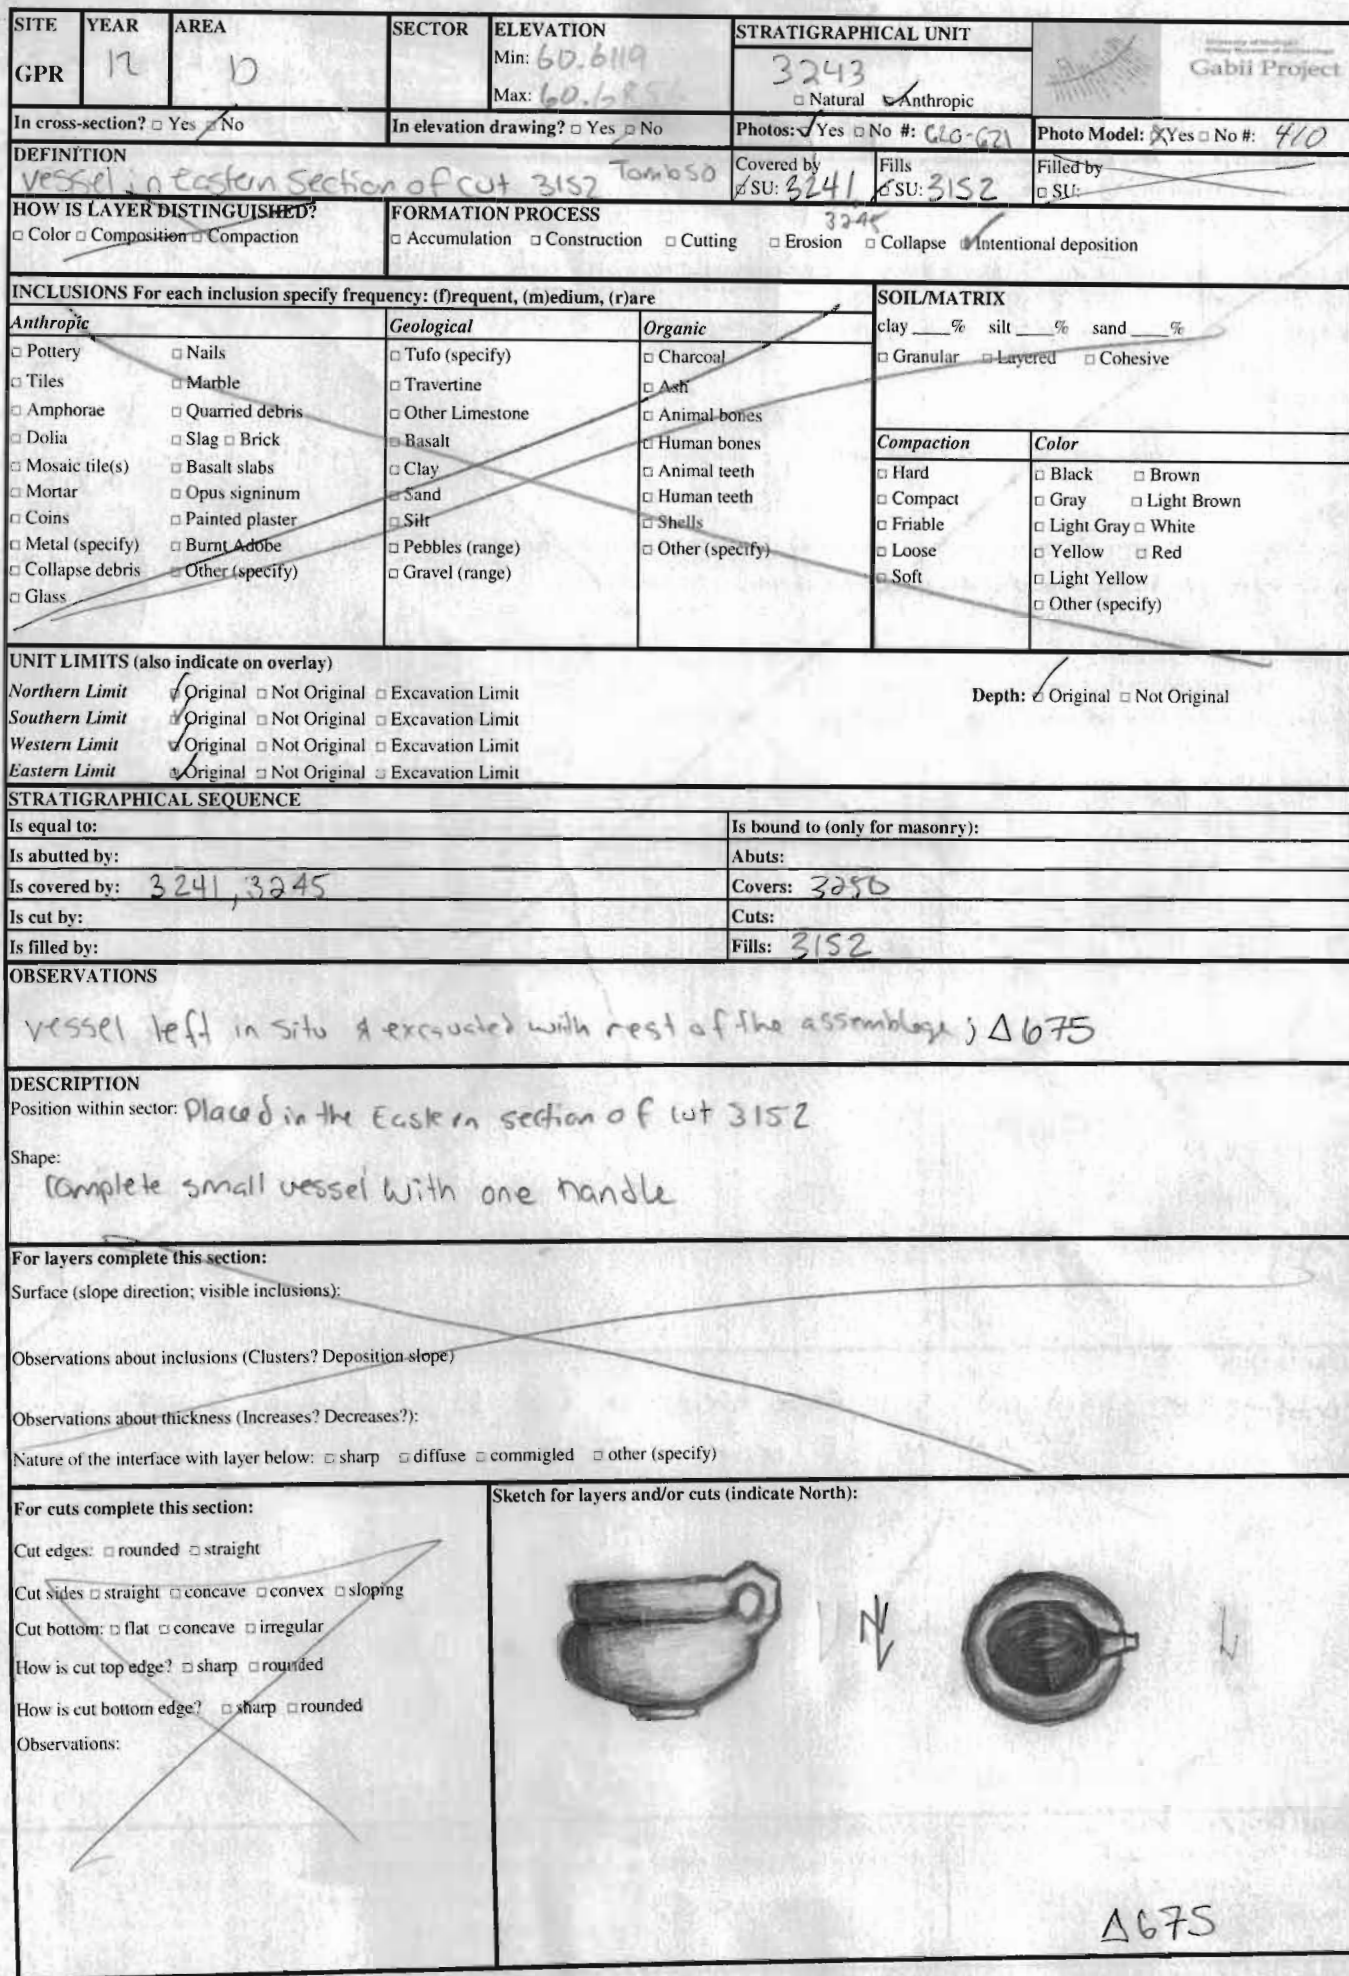 SITE YEAR AREA SECTOR ELEVATION STRATIGRAPHICAL UNIT
GPR 12 D Min: 60.6119 3243
Max: □ Natural ☑ Anthropic
Gabii Project
In cross-section? □ Yes ☑ No In elevation drawing? □ Yes ☑ No Photos: ☑ Yes □ No #: 620-621 Photo Model: ☒ Yes □ No #: 410
DEFINITION
vessel in eastern section of cut 3152 Tomb 50
Covered by ☑ SU: 3241, 3245
Fills ☑ SU: 3152
Filled by □ SU:
HOW IS LAYER DISTINGUISHED?
□ Color □ Composition □ Compaction
FORMATION PROCESS
□ Accumulation □ Construction □ Cutting □ Erosion □ Collapse ☑ Intentional deposition
INCLUSIONS For each inclusion specify frequency: (f)requent, (m)edium, (r)are
Anthropic
□ Pottery □ Nails
□ Tiles □ Marble
□ Amphorae □ Quarried debris
□ Dolia □ Slag □ Brick
□ Mosaic tile(s) □ Basalt slabs
□ Mortar □ Opus signinum
□ Coins □ Painted plaster
□ Metal (specify) □ Burnt Adobe
□ Collapse debris □ Other (specify)
□ Glass
Geological
□ Tufo (specify)
□ Travertine
□ Other Limestone
□ Basalt
□ Clay
□ Sand
□ Silt
□ Pebbles (range)
□ Gravel (range)
Organic
□ Charcoal
□ Ash
□ Animal bones
□ Human bones
□ Animal teeth
□ Human teeth
□ Shells
□ Other (specify)
SOIL/MATRIX
clay ____% silt ____% sand ____%
□ Granular □ Layered □ Cohesive
Compaction
□ Hard
□ Compact
□ Friable
□ Loose
□ Soft
Color
□ Black □ Brown
□ Gray □ Light Brown
□ Light Gray □ White
□ Yellow □ Red
□ Light Yellow
□ Other (specify)
UNIT LIMITS (also indicate on overlay)
Northern Limit ☑ Original □ Not Original □ Excavation Limit Depth: ☑ Original □ Not Original
Southern Limit ☑ Original □ Not Original □ Excavation Limit
Western Limit ☑ Original □ Not Original □ Excavation Limit
Eastern Limit ☑ Original □ Not Original □ Excavation Limit
STRATIGRAPHICAL SEQUENCE
Is equal to: Is bound to (only for masonry):
Is abutted by: Abuts:
Is covered by: 3241, 3245 Covers: 3250
Is cut by: Cuts:
Is filled by: Fills: 3152
OBSERVATIONS
vessel left in situ & excavated with rest of the assemblage; Δ675
DESCRIPTION
Position within sector: Placed in the Eastern section of cut 3152
Shape:
complete small vessel with one handle
For layers complete this section:
Surface (slope direction; visible inclusions):
Observations about inclusions (Clusters? Deposition slope)
Observations about thickness (Increases? Decreases?):
Nature of the interface with layer below: □ sharp □ diffuse □ commigled □ other (specify)
For cuts complete this section:
Cut edges: □ rounded □ straight
Cut sides □ straight □ concave □ convex □ sloping
Cut bottom: □ flat □ concave □ irregular
How is cut top edge? □ sharp □ rounded
How is cut bottom edge? □ sharp □ rounded
Observations:
Sketch for layers and/or cuts (indicate North):
N
Δ675